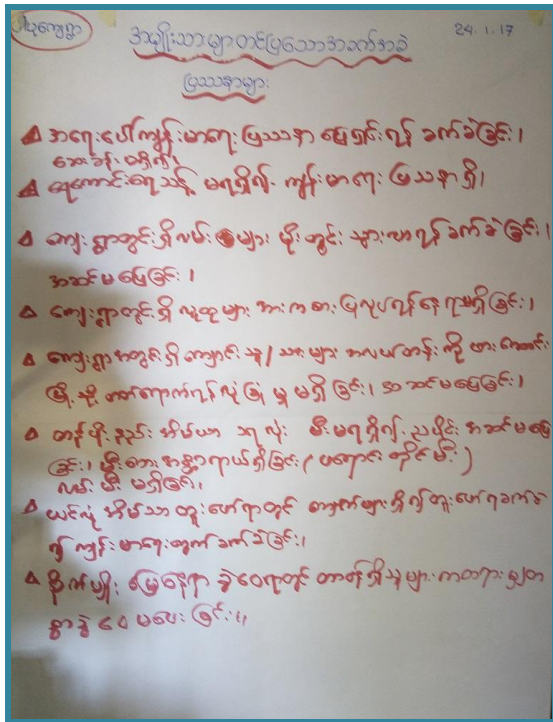 ပဲဒုကျေးရွာ
24.1.17
အမျိုးသားများတင်ပြသောအခက်အခဲ
ပြဿနာများ
အရေးပေါ်ကျန်းမာရေး ပြဿနာ ဖြေရှင်းရန် ခက်ခဲခြင်း၊
ဆေးခန်းမရှိ၍၊
ရေကောင်းရေသန့် မရရှိ၍ ကျန်းမာရေး ပြဿနာရှိ၊
ကျေးရွာတွင်းရှိလမ်းများ မိုးတွင်း သွားလာရန် ခက်ခဲခြင်း၊
အဆင်မပြေခြင်း၊
ကျေးရွာတွင်းရှိ လူထုများ အားကစားပြုလုပ်ရန်နေရာမရှိခြင်း၊
ကျေးရွာအတွင်းရှိ ကျောင်းသူ/သားများ အလယ်တန်းကို ဖားဆောင်း
မြို့သို့ တက်ရောက်ရန် လုံခြုံမှု မရှိခြင်း၊ အဆင်မပြေခြင်း၊
တန်ဖိုးနည်းအိမ်ယာ ၁၅ လုံး မီးမရရှိ၍ ညပိုင်းအဆင်မပြေ
ခြင်း၊ မီးဘေးအန္တရာယ်ရှိခြင်း (ဖယောင်းတိုင်မီး)
လမ်းမီး မရှိခြင်း၊
ယင်လုံအိမ်သာတူးဖော်ရာတွင် ကျောက်များရှိ၍တူးဖော်ရခက်ခဲ
၍ ကျန်းမာရေးတွက် ခက်ခဲခြင်း၊
စိုက်ပျိုးမြေနေရာ ခွဲဝေရာတွင် တာဝန်ရှိသူများကတရားမျှတ
စွာခွဲဝေမပေးခြင်း၊